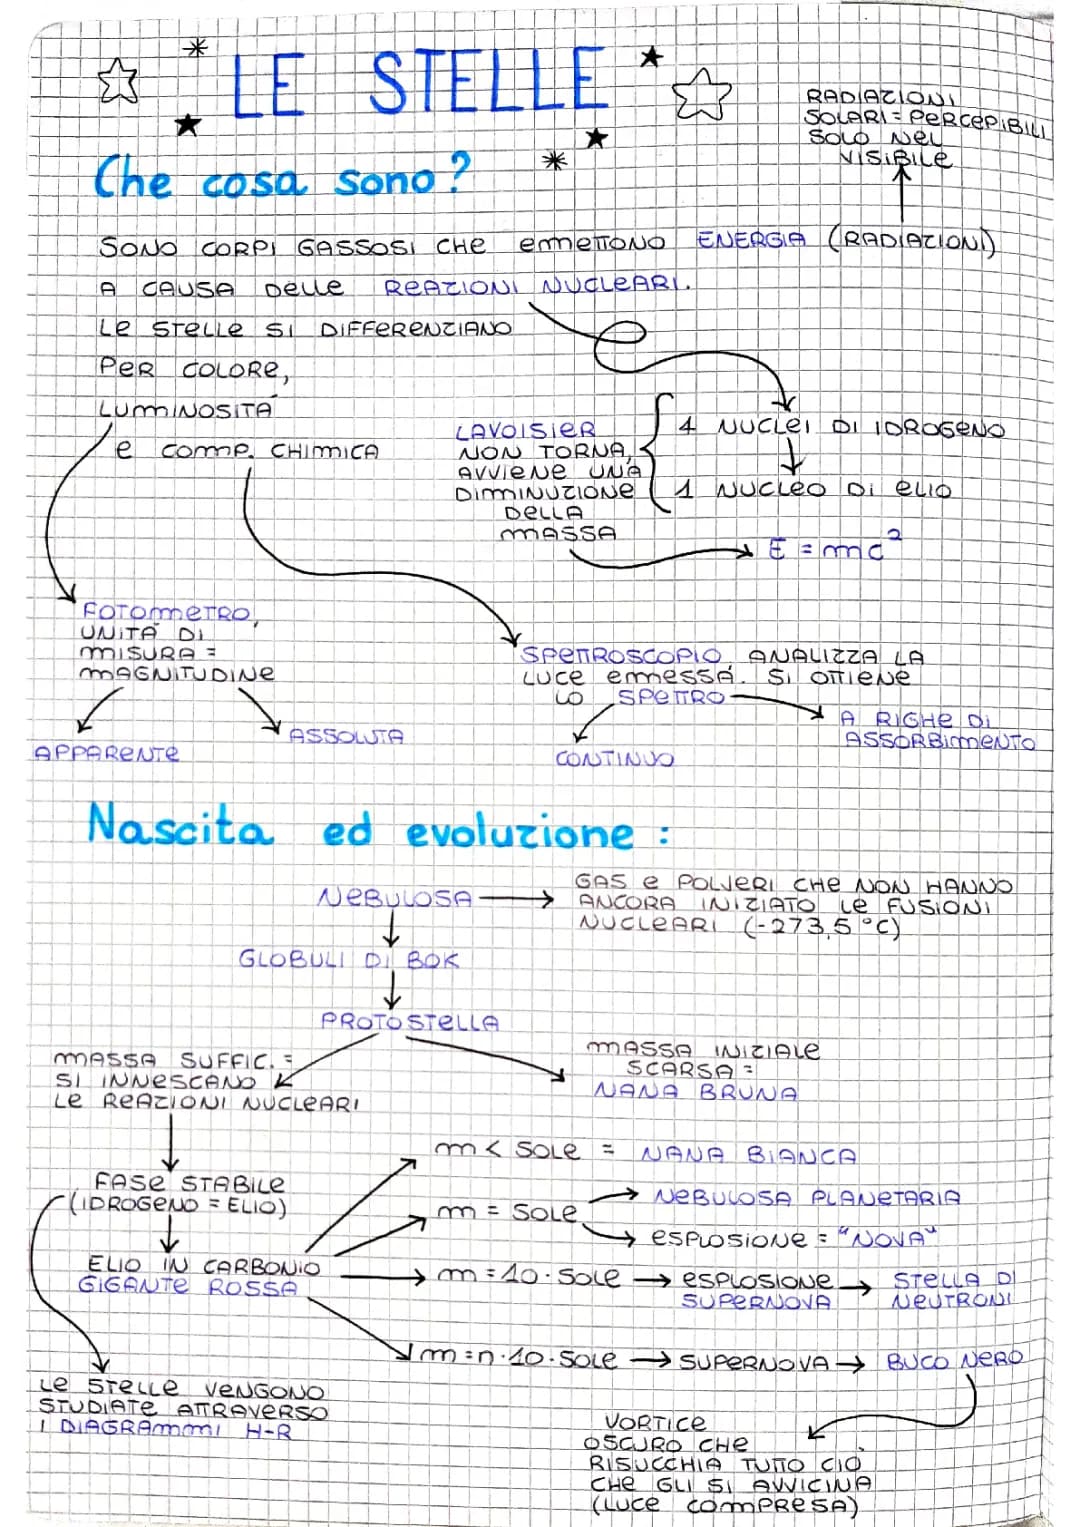 LE STELLE
RADIAZIONI
SOLARI = PERCEPIBILI
SOLO NEL
VISIBILE
Che cosa sono?
SONO CORPI GASSOSI CHE EMETTONO ENERGIA (RADIAZIONI)
A CAUSA DELLE REAZIONI NUCLEARI.
LE STELLE SI DIFFERENZIANO
PER COLORE,
LUMINOSITÀ
E COMP. CHIMICA
LAVOISIER
NON TORNA,
AVVIENE UNA
DIMINUZIONE
DELLA
MASSA
4 NUCLEI DI IDROGENO
1 NUCLEO DI ELIO
E = mc²
FOTOMETRO,
UNITÀ DI
MISURA =
MAGNITUDINE
APPARENTE
ASSOLUTA
SPETTROSCOPIO, ANALIZZA LA
LUCE EMESSA. SI OTTIENE
LO SPETTRO
CONTINUO
A RIGHE DI
ASSORBIMENTO
Nascita ed evoluzione:
NEBULOSA
GAS E POLVERI CHE NON HANNO
ANCORA INIZIATO LE FUSIONI
NUCLEARI (-273,5 °C)
GLOBULI DI BOK
PROTOSTELLA
MASSA SUFFIC. =
SI INNESCANO
LE REAZIONI NUCLEARI
MASSA INIZIALE
SCARSA =
NANA BRUNA
FASE STABILE
(IDROGENO = ELIO)
ELIO IN CARBONIO
GIGANTE ROSSA
m < SOLE = NANA BIANCA
m = SOLE
NEBULOSA PLANETARIA
ESPLOSIONE = "NOVA"
m = 10 · SOLE
ESPLOSIONE
SUPERNOVA
STELLA DI
NEUTRONI
m = n · 10 · SOLE
SUPERNOVA
BUCO NERO
LE STELLE VENGONO
STUDIATE ATTRAVERSO
I DIAGRAMMI H-R
VORTICE
OSCURO CHE
RISUCCHIA TUTTO CIÒ
CHE GLI SI AVVICINA
(LUCE COMPRESA)